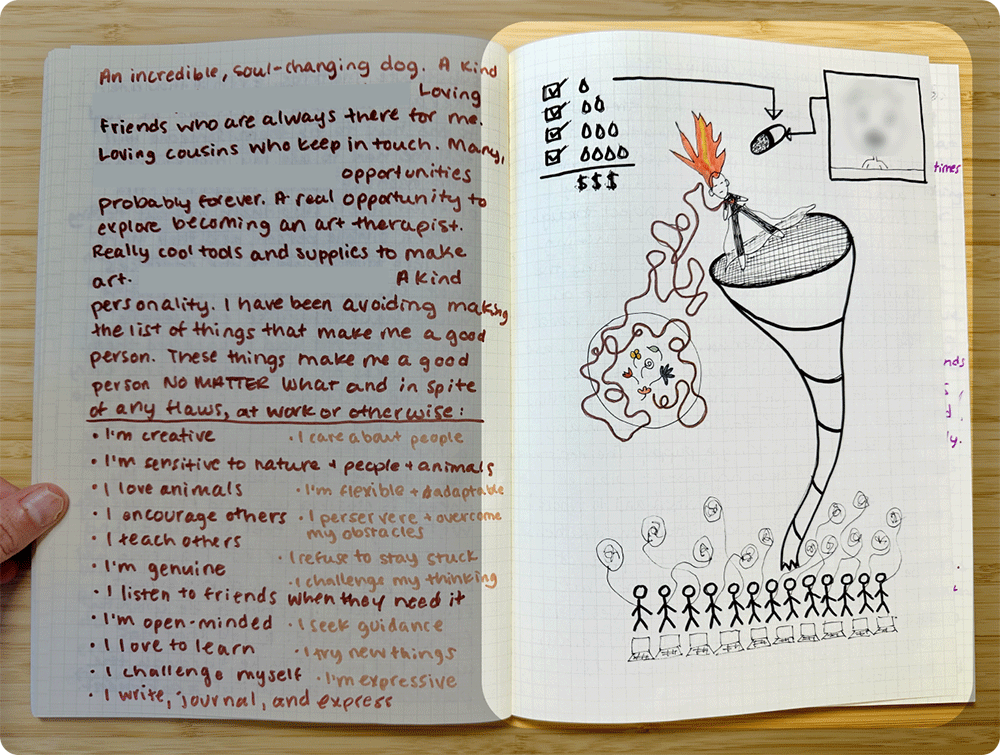 An incredible, soul-changing dog. A kind
Loving
friends who are always there for me.
Loving cousins who keep in touch. Many,
opportunities
probably forever. A real opportunity to
explore becoming an art therapist.
Really cool tools and supplies to make
art. A kind
personality. I have been avoiding making
the list of things that make me a good
person. These things make me a good
person NO MATTER what and in spite
of any flaws, at work or otherwise:
• I'm creative
• I care about people
• I'm sensitive to nature + people + animals
• I love animals
• I'm flexible + adaptable
• I encourage others
• I perservere + overcome
my obstacles
• I teach others
• I refuse to stay stuck
• I'm genuine
• I challenge my thinking
• I listen to friends when they need it
• I'm open-minded
• I seek guidance
• I love to learn
• I try new things
• I challenge myself
• I'm expressive
• I write, journal, and express
$$$
times
nds
ly.